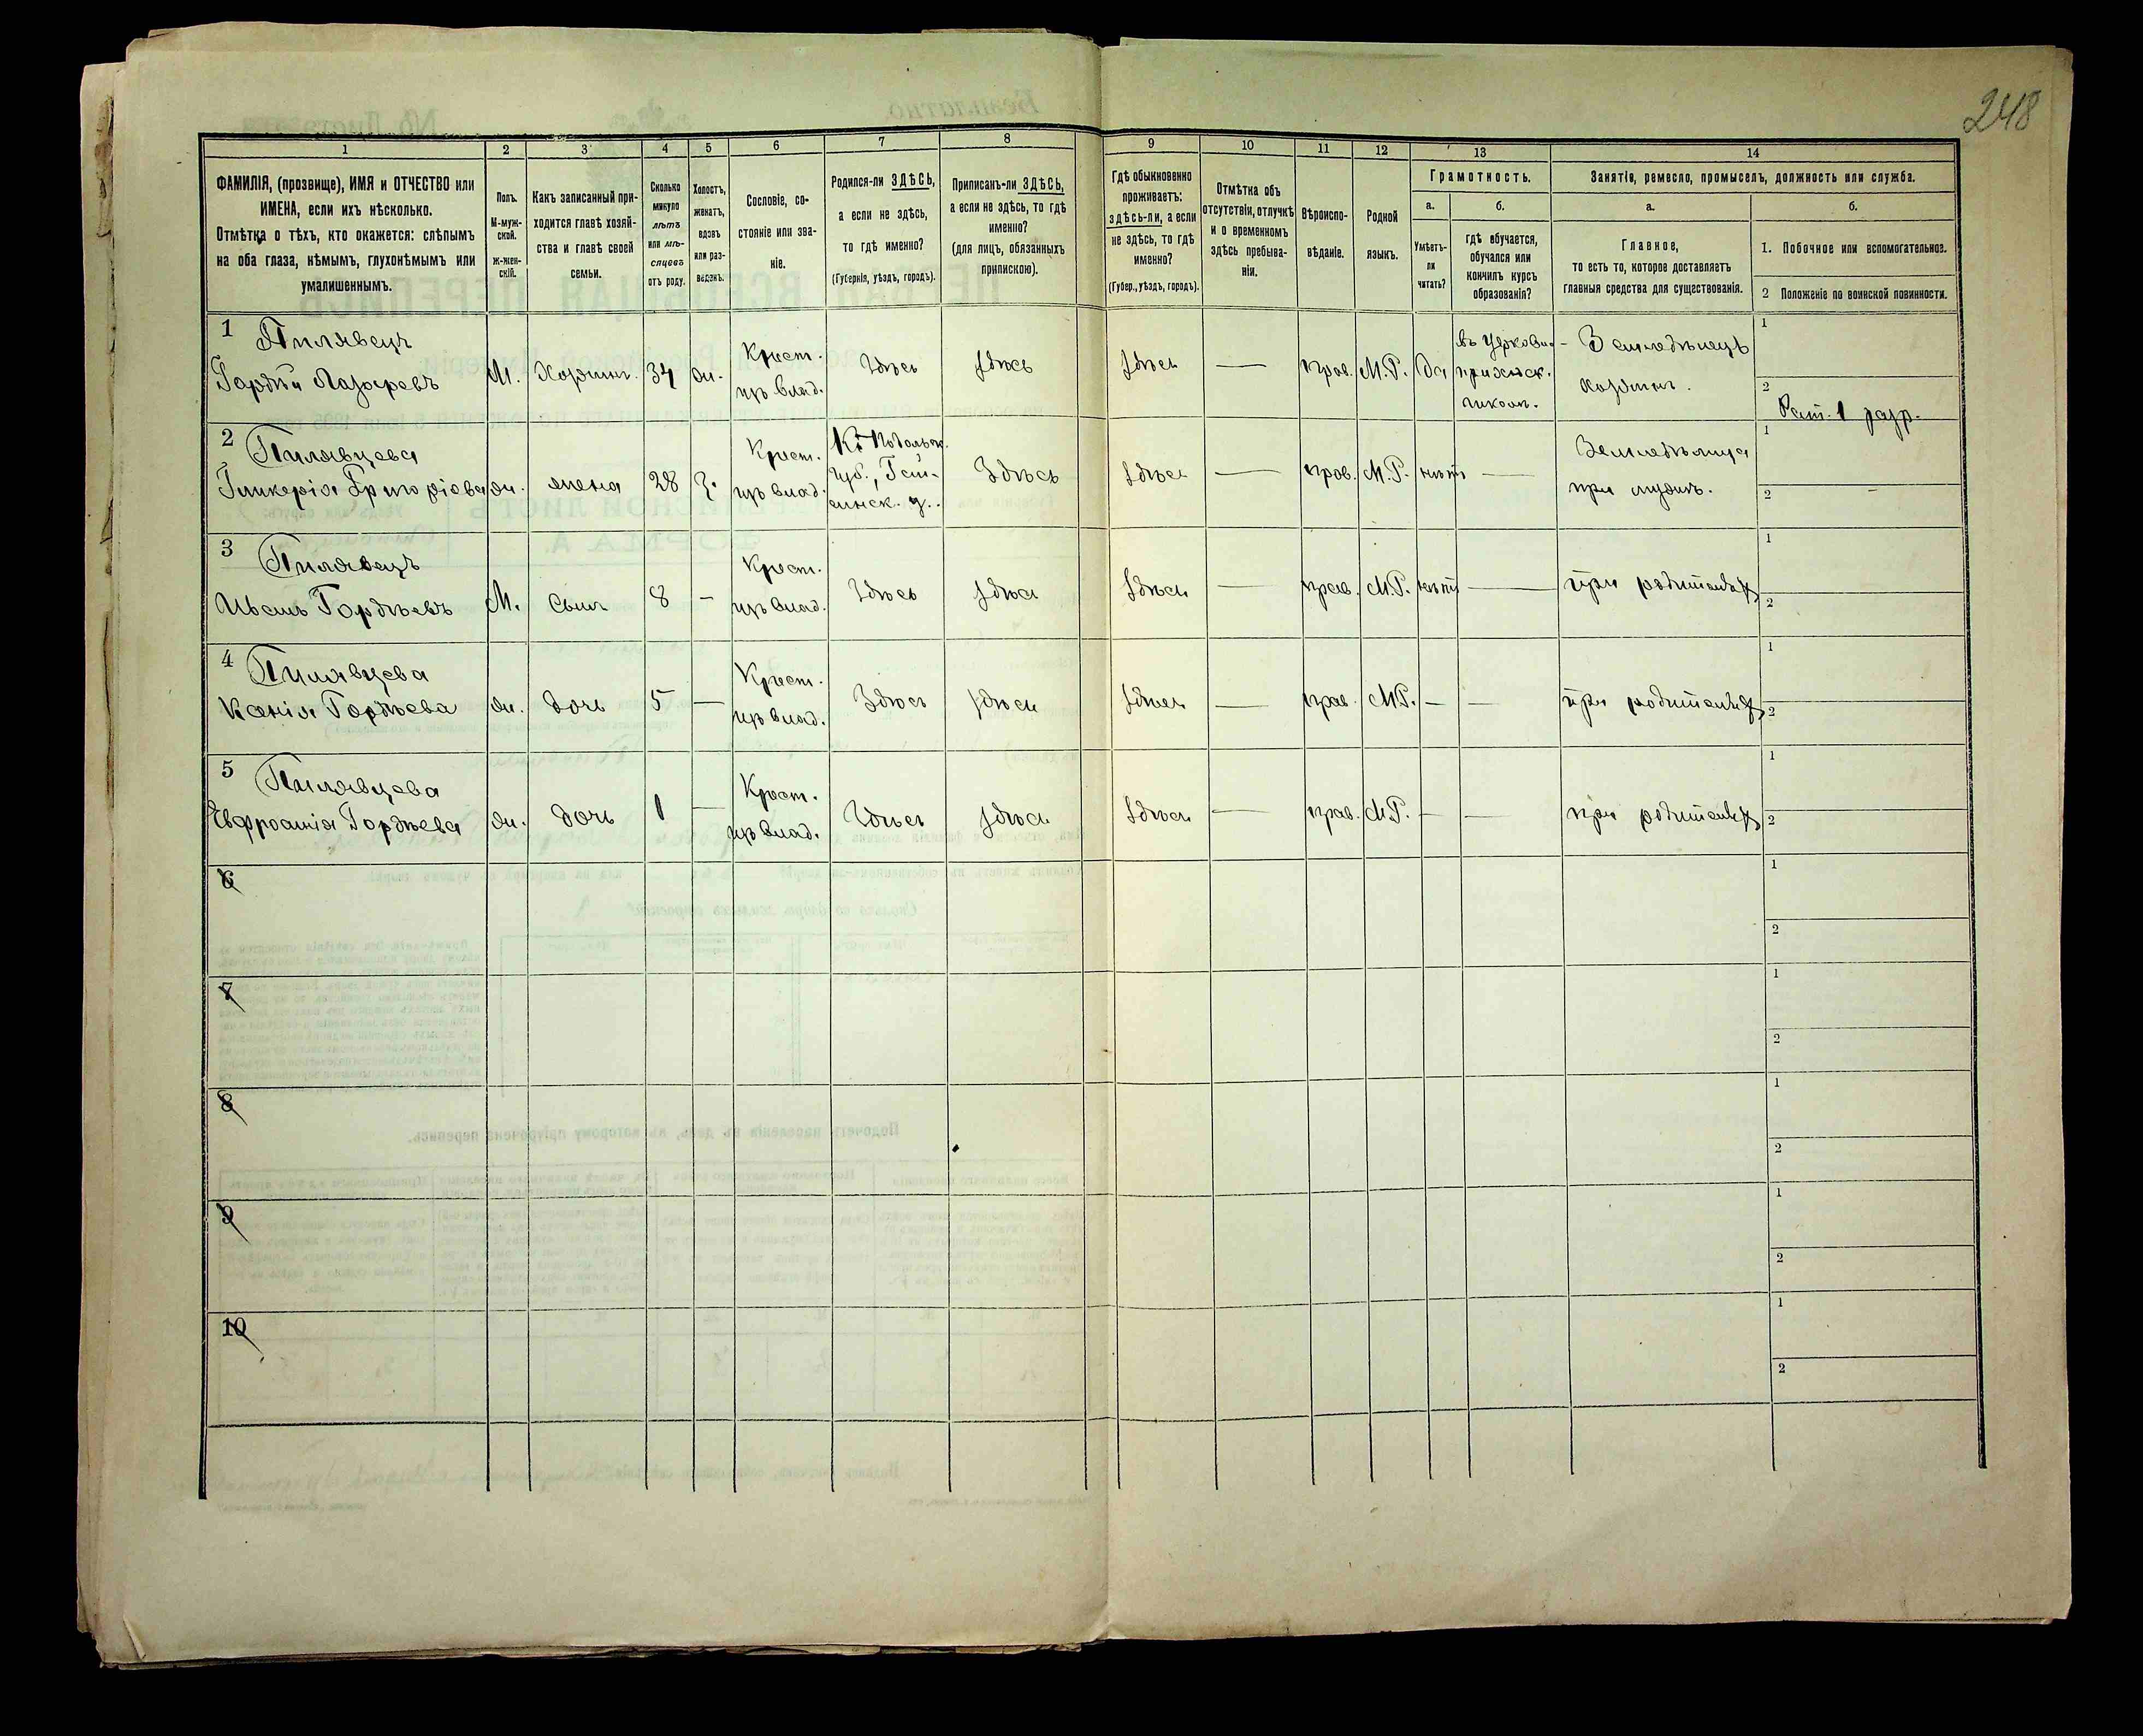 248
1
2
3
4
5
6
7
8
9
10
11
12
13
14
ФАМИЛІЯ, (прозвище), ИМЯ и ОТЧЕСТВО или
ИМЕНА, если ихъ нѣсколько.
Отмѣтка о тѣхъ, кто окажется: слѣпымъ
на оба глаза, нѣмымъ, глухонѣмымъ или
умалишеннымъ.
Полъ.
М-муж-
ской.
Ж-жен-
скій.
Какъ записанный при-
ходится главѣ хозяй-
ства и главѣ своей
семьи.
Сколько
минуло
лѣтъ
или мѣ-
сяцевъ
отъ роду.
Холостъ,
женатъ,
вдовъ
или раз-
веденъ.
Сословіе, со-
стояніе или зва-
ніе.
Родился-ли ЗДѢСЬ,
а если не здѣсь,
то гдѣ именно?
(Губернія, уѣздъ, городъ).
Приписанъ-ли ЗДѢСЬ,
а если не здѣсь, то гдѣ
именно?
(для лицъ, обязанныхъ
припискою).
Гдѣ обыкновенно
проживаетъ:
здѣсь-ли, а если
не здѣсь, то гдѣ
именно?
(Губер., уѣздъ, городъ).
Отмѣтка объ
отсутствіи, отлучкѣ
и о временномъ
здѣсь пребыва-
ніи.
Вѣроиспо-
вѣданіе.
Родной
языкъ.
Грамотность.
а.
Умѣетъ-
ли
читать?
б.
гдѣ обучается,
обучался или
кончилъ курсъ
образованія?
Занятіе, ремесло, промыселъ, должность или служба.
а.
Главное,
то есть то, которое доставляетъ
главныя средства для существованія.
б.
1. Побочное или вспомогательное.
2 Положеніе по воинской повинности.
1 Пилявецъ
Гордѣй Лазаревъ
М.
Хозяинъ.
34
жн.
Крест.
изъ влад.
Здѣсь
здѣсь
здѣсь
—
прав.
М.Р.
да
въ церковн-
приходск.
школѣ.
Земледѣлецъ
хозяинъ.
1
2
Рат. 1 разр.
2 Пилявцева
Гликерія Григоріева
ж.
жена
28
з.
Крест.
изъ влад.
Подольск.
губ., Гай-
синск. у.
Здѣсь
здѣсь
—
прав.
М.Р.
нѣтъ
—
Земледѣлица
при мужѣ.
1
2 —
3 Пилявецъ
Иванъ Гордѣевъ
М.
сынъ
8
—
Крест.
изъ влад.
Здѣсь
здѣсь
здѣсь
—
прав.
М.Р.
нѣтъ
—
при родителяхъ
1
2
4 Пилявцева
Ксенія Гордѣева
ж.
дочь
5
—
Крест.
изъ влад.
Здѣсь
здѣсь
здѣсь
—
прав.
М.Р.
—
—
при родителяхъ
1
2
5 Пилявцева
Евфросинія Гордѣева
ж.
дочь
1
—
Крест.
изъ влад.
Здѣсь
здѣсь
здѣсь
—
прав.
М.Р.
—
—
при родителяхъ
1
2
6
1
2
7
1
2
8
1
2
9
1
2
10
1
2